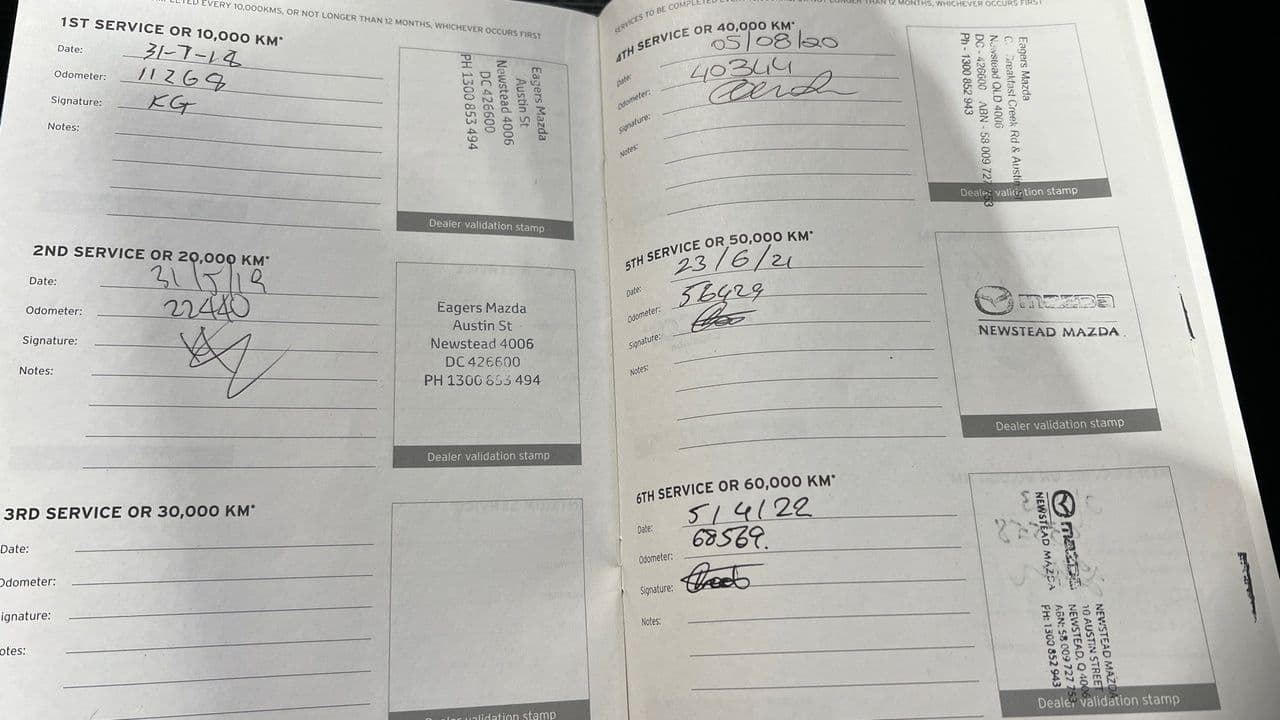 ETED EVERY 10,000KMS, OR NOT LONGER THAN 12 MONTHS, WHICHEVER OCCURS FIRST
1ST SERVICE OR 10,000 KM*
Date: 31-7-18
Odometer: 11268
Signature: KG
Notes:
Eagers Mazda
Austin St
Newstead 4006
DC 426600
PH 1300 853 494
Dealer validation stamp
2ND SERVICE OR 20,000 KM*
Date: 31/5/19
Odometer: 22440
Signature:
Notes:
Eagers Mazda
Austin St
Newstead 4006
DC 426600
PH 1300 853 494
Dealer validation stamp
3RD SERVICE OR 30,000 KM*
Date:
Odometer:
ignature:
otes:
Dealer validation stamp
SERVICES TO BE COMPLETED EVERY 10,000KMS, OR NOT LONGER THAN 12 MONTHS, WHICHEVER OCCURS FIRST
4TH SERVICE OR 40,000 KM*
Date: 05/08/20
Odometer: 40344
Signature:
Notes:
Eagers Mazda
Breakfast Creek Rd & Austin
Newstead QLD 4006
DC - 426600 ABN - 58 009 727 753
Ph - 1300 852 943
Dealer validation stamp
5TH SERVICE OR 50,000 KM*
Date: 23/6/21
Odometer: 56429
Signature:
Notes:
mazda
NEWSTEAD MAZDA
Dealer validation stamp
6TH SERVICE OR 60,000 KM*
Date: 5/4/22
Odometer: 68569.
Signature:
Notes:
mazda
NEWSTEAD MAZDA
NEWSTEAD MAZDA
10 AUSTIN STREET
NEWSTEAD, Q 4006
ABN: 58 009 727 753
PH: 1300 852 943
Dealer validation stamp